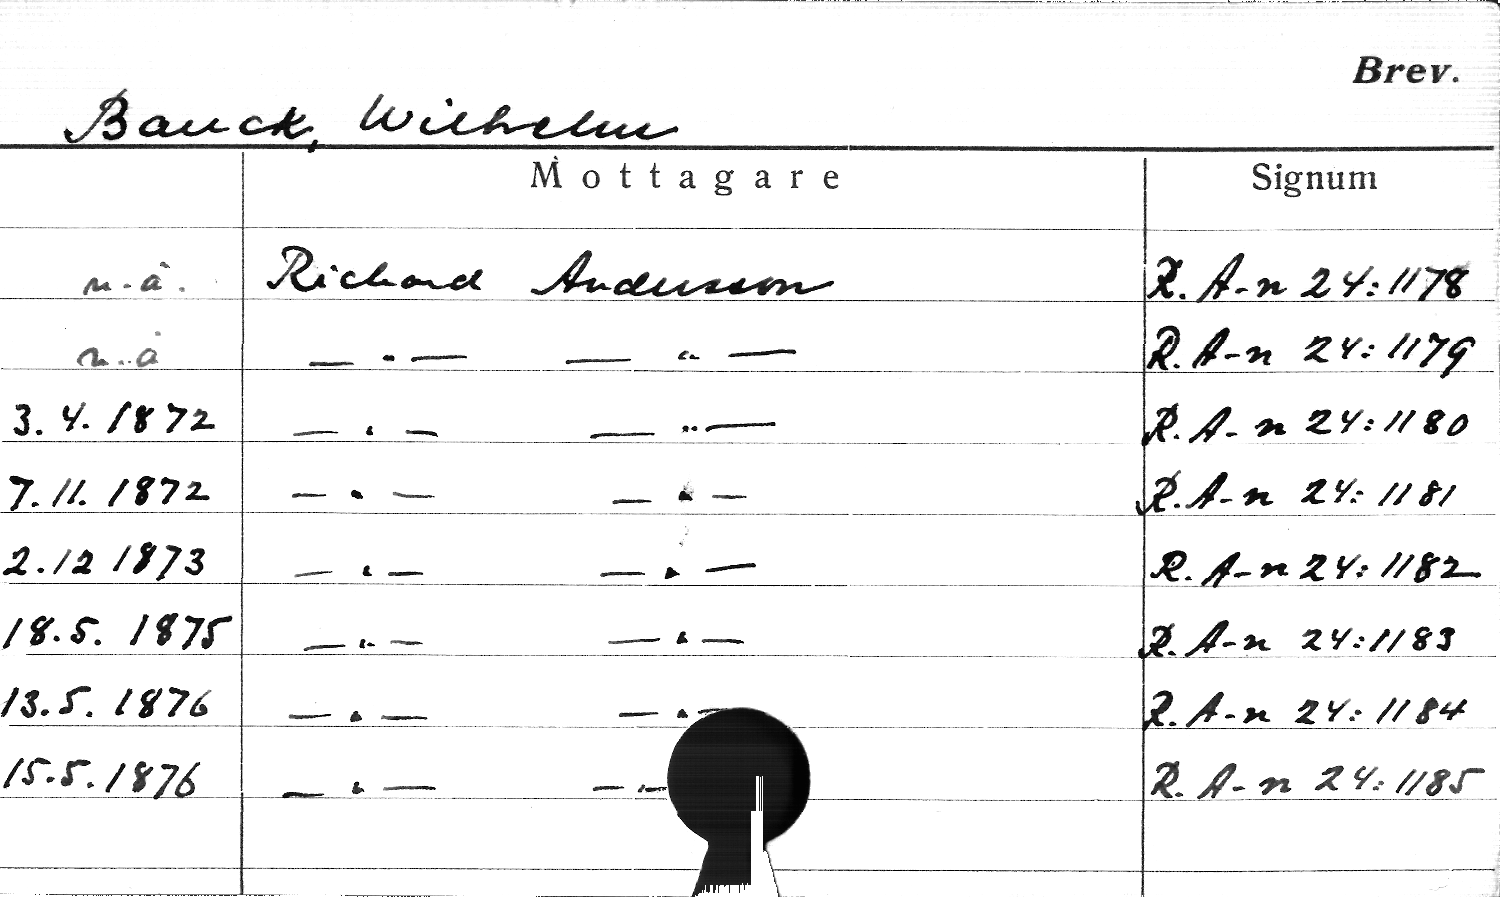 Brev.
Bauck, Wilhelm
Mottagare Signum
n.å. Richard Andersson R. A-n 24:1178
n.å — " — — " — R. A-n 24:1179
3.4.1872 — " — — " — R. A-n 24:1180
7.11.1872 — " — — " — R. A-n 24:1181
2.12 1873 — " — — " — R. A-n 24:1182
18.5.1875 — " — — " — R. A-n 24:1183
13.5.1876 — " — — " — R. A-n 24:1184
15.5.1876 — " — — " R. A-n 24:1185